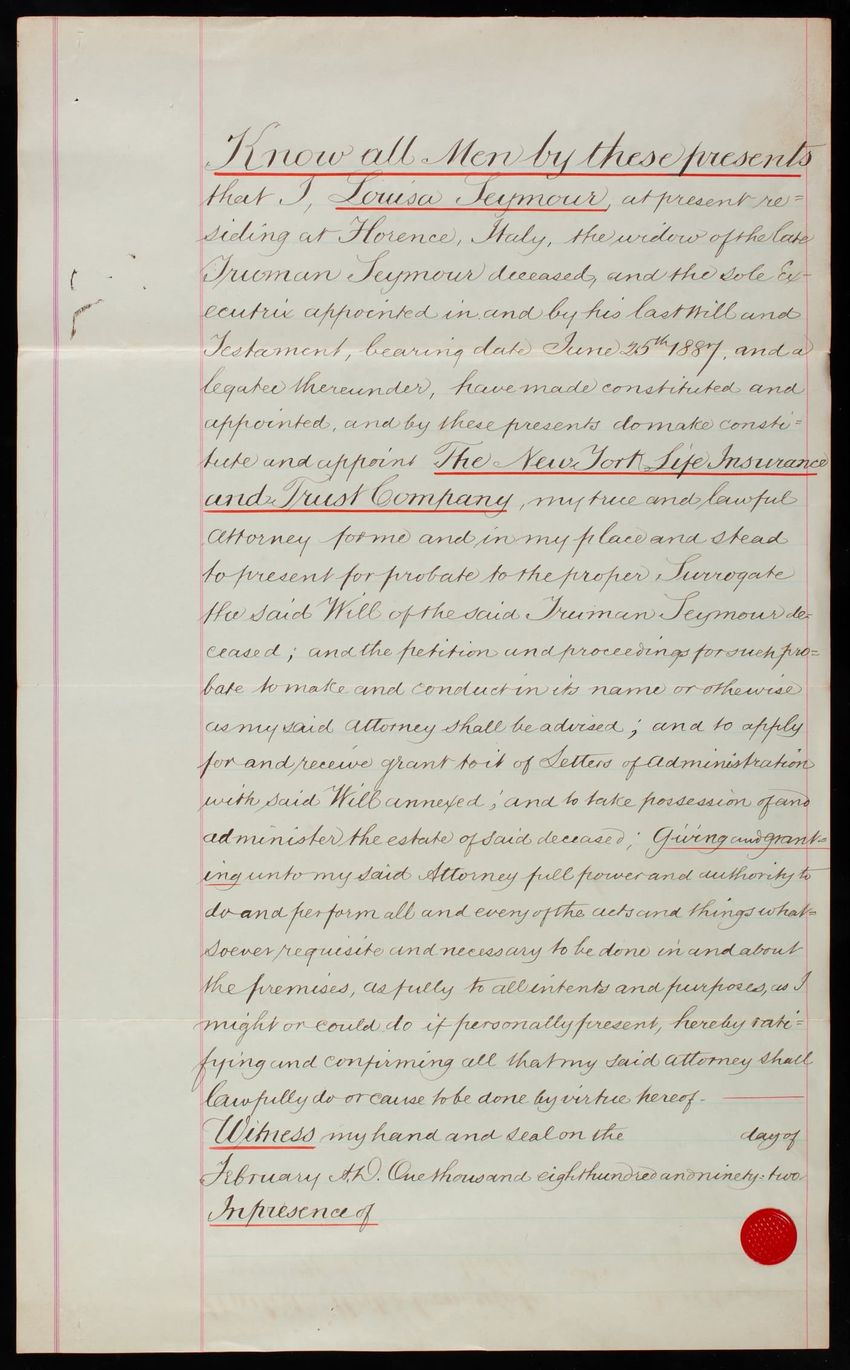 Know all Men by these presents
that I, Louisa Seymour, at present re=
siding at Florence, Italy, the widow of the late
Truman Seymour deceased, and the sole Ex-
ecutrix appointed in and by his last Will and
Testament, bearing date June 25th 1887, and a
legatee thereunder, have made constituted and
appointed, and by these presents do make consti=
tute and appoint The New York Life Insurance
and Trust Company, my true and lawful
attorney for me and in my place and stead
to present for probate to the proper Surrogate
the said Will of the said Truman Seymour de=
ceased; and the petition and proceedings for such pro=
bate to make and conduct in its name or otherwise
as my said attorney shall be advised; and to apply
for and receive grant to it of Letters of administration
with said Will annexed; and to take possession of and
administer the estate of said deceased; Giving and grant=
ing unto my said Attorney full power and authority to
do and perform all and every of the acts and things what=
soever requisite and necessary to be done in and about
the premises, as fully to all intents and purposes, as I
might or could do if personally present, hereby rati=
fying and confirming all that my said attorney shall
lawfully do or cause to be done by virtue hereof.
Witness my hand and seal on the day of
February A.D. One thousand eight hundred and ninety-two
In presence of